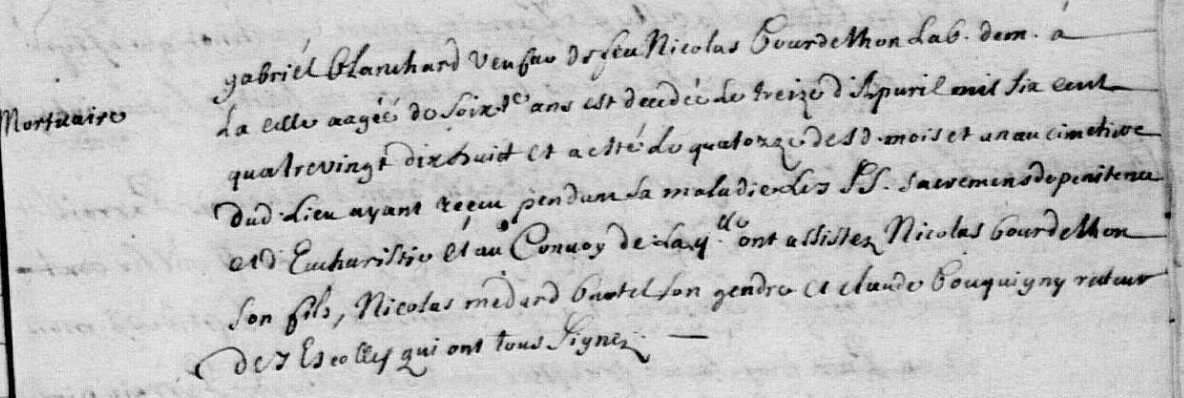 gabriél blanchard veufve de feu Nicolas bourdethon Lab. dem. à
Mortuaire
La celle aagéé de soix.te ans est decedée le treize d'apuril mil six cent
quatrevingt dixhuict et a esté le quatorze desd. mois et an au cimetiere
dud. lieu ayant receu pendant sa maladie les SS. sacremens de penitence
et d'Eucharistie et au Convoy de laq.lle ont assistez Nicolas bourdethon
son fils, Nicolas medard son gendre et claude bouquigny recteur
des Escolles qui ont tous signez. —